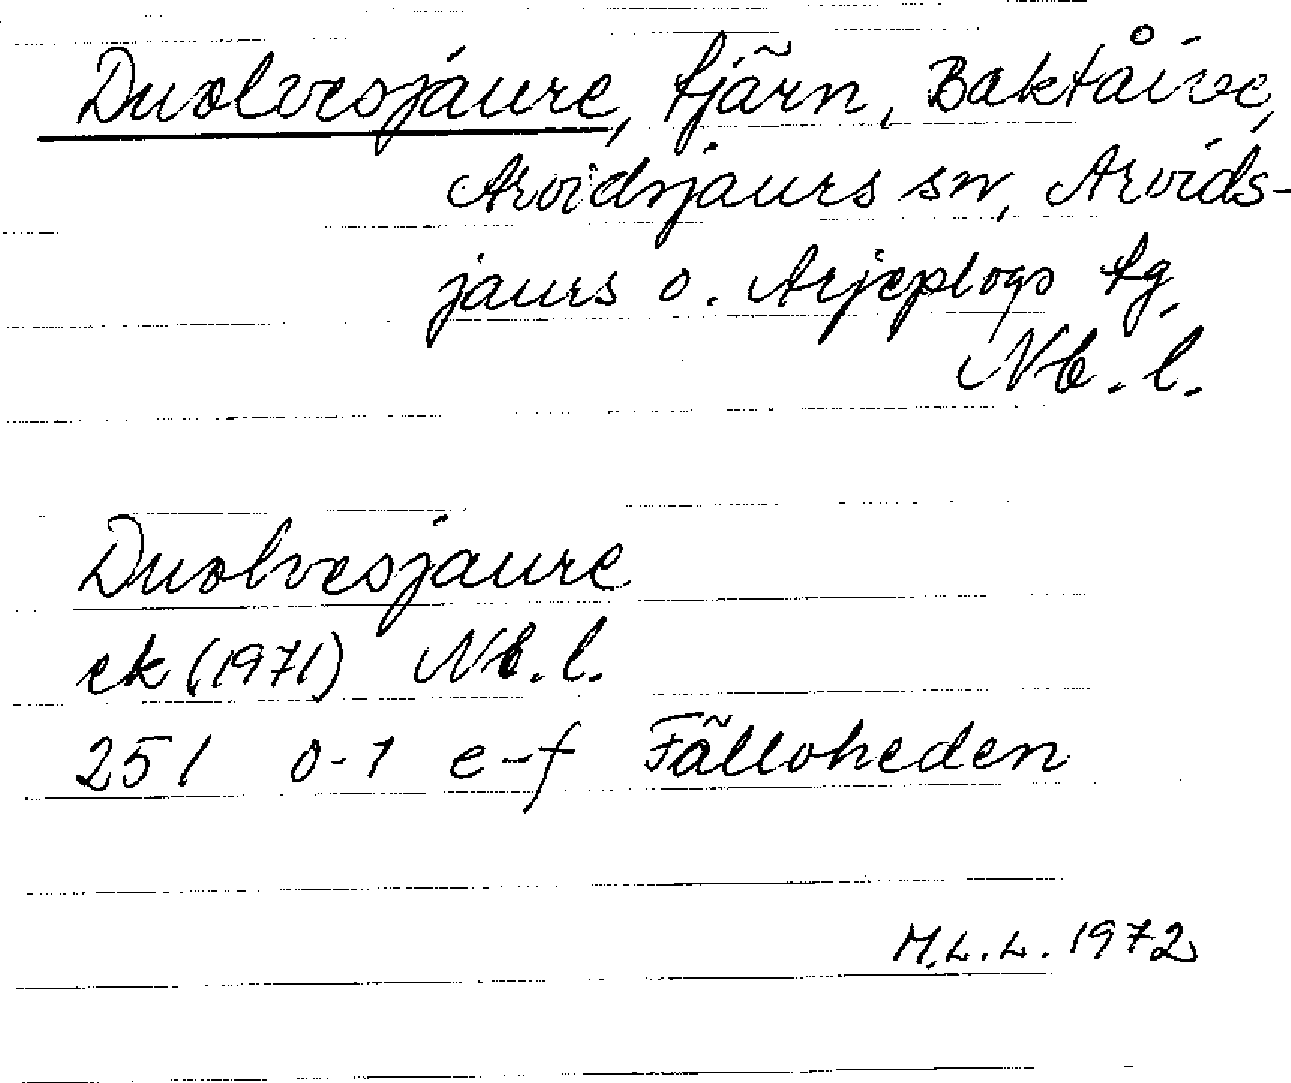 Duolvesjaure, tjärn, Baktåive,
Arvidsjaurs sn, Arvids-
jaurs o. Arjeplogs tg,
Nb. l.
Duolvesjaure
ek (1971) Nb. l.
251 0-1 e-f Fälloheden
M.L.L. 1972